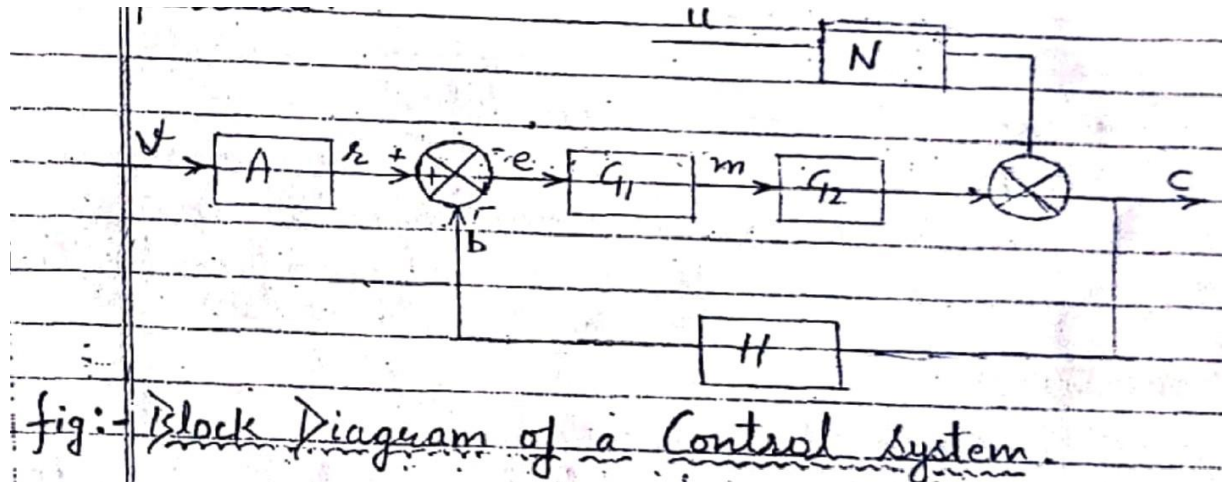 u
N
v A r + + - e G1 m G2 c
-
b
H
fig:- Block Diagram of a Control system.